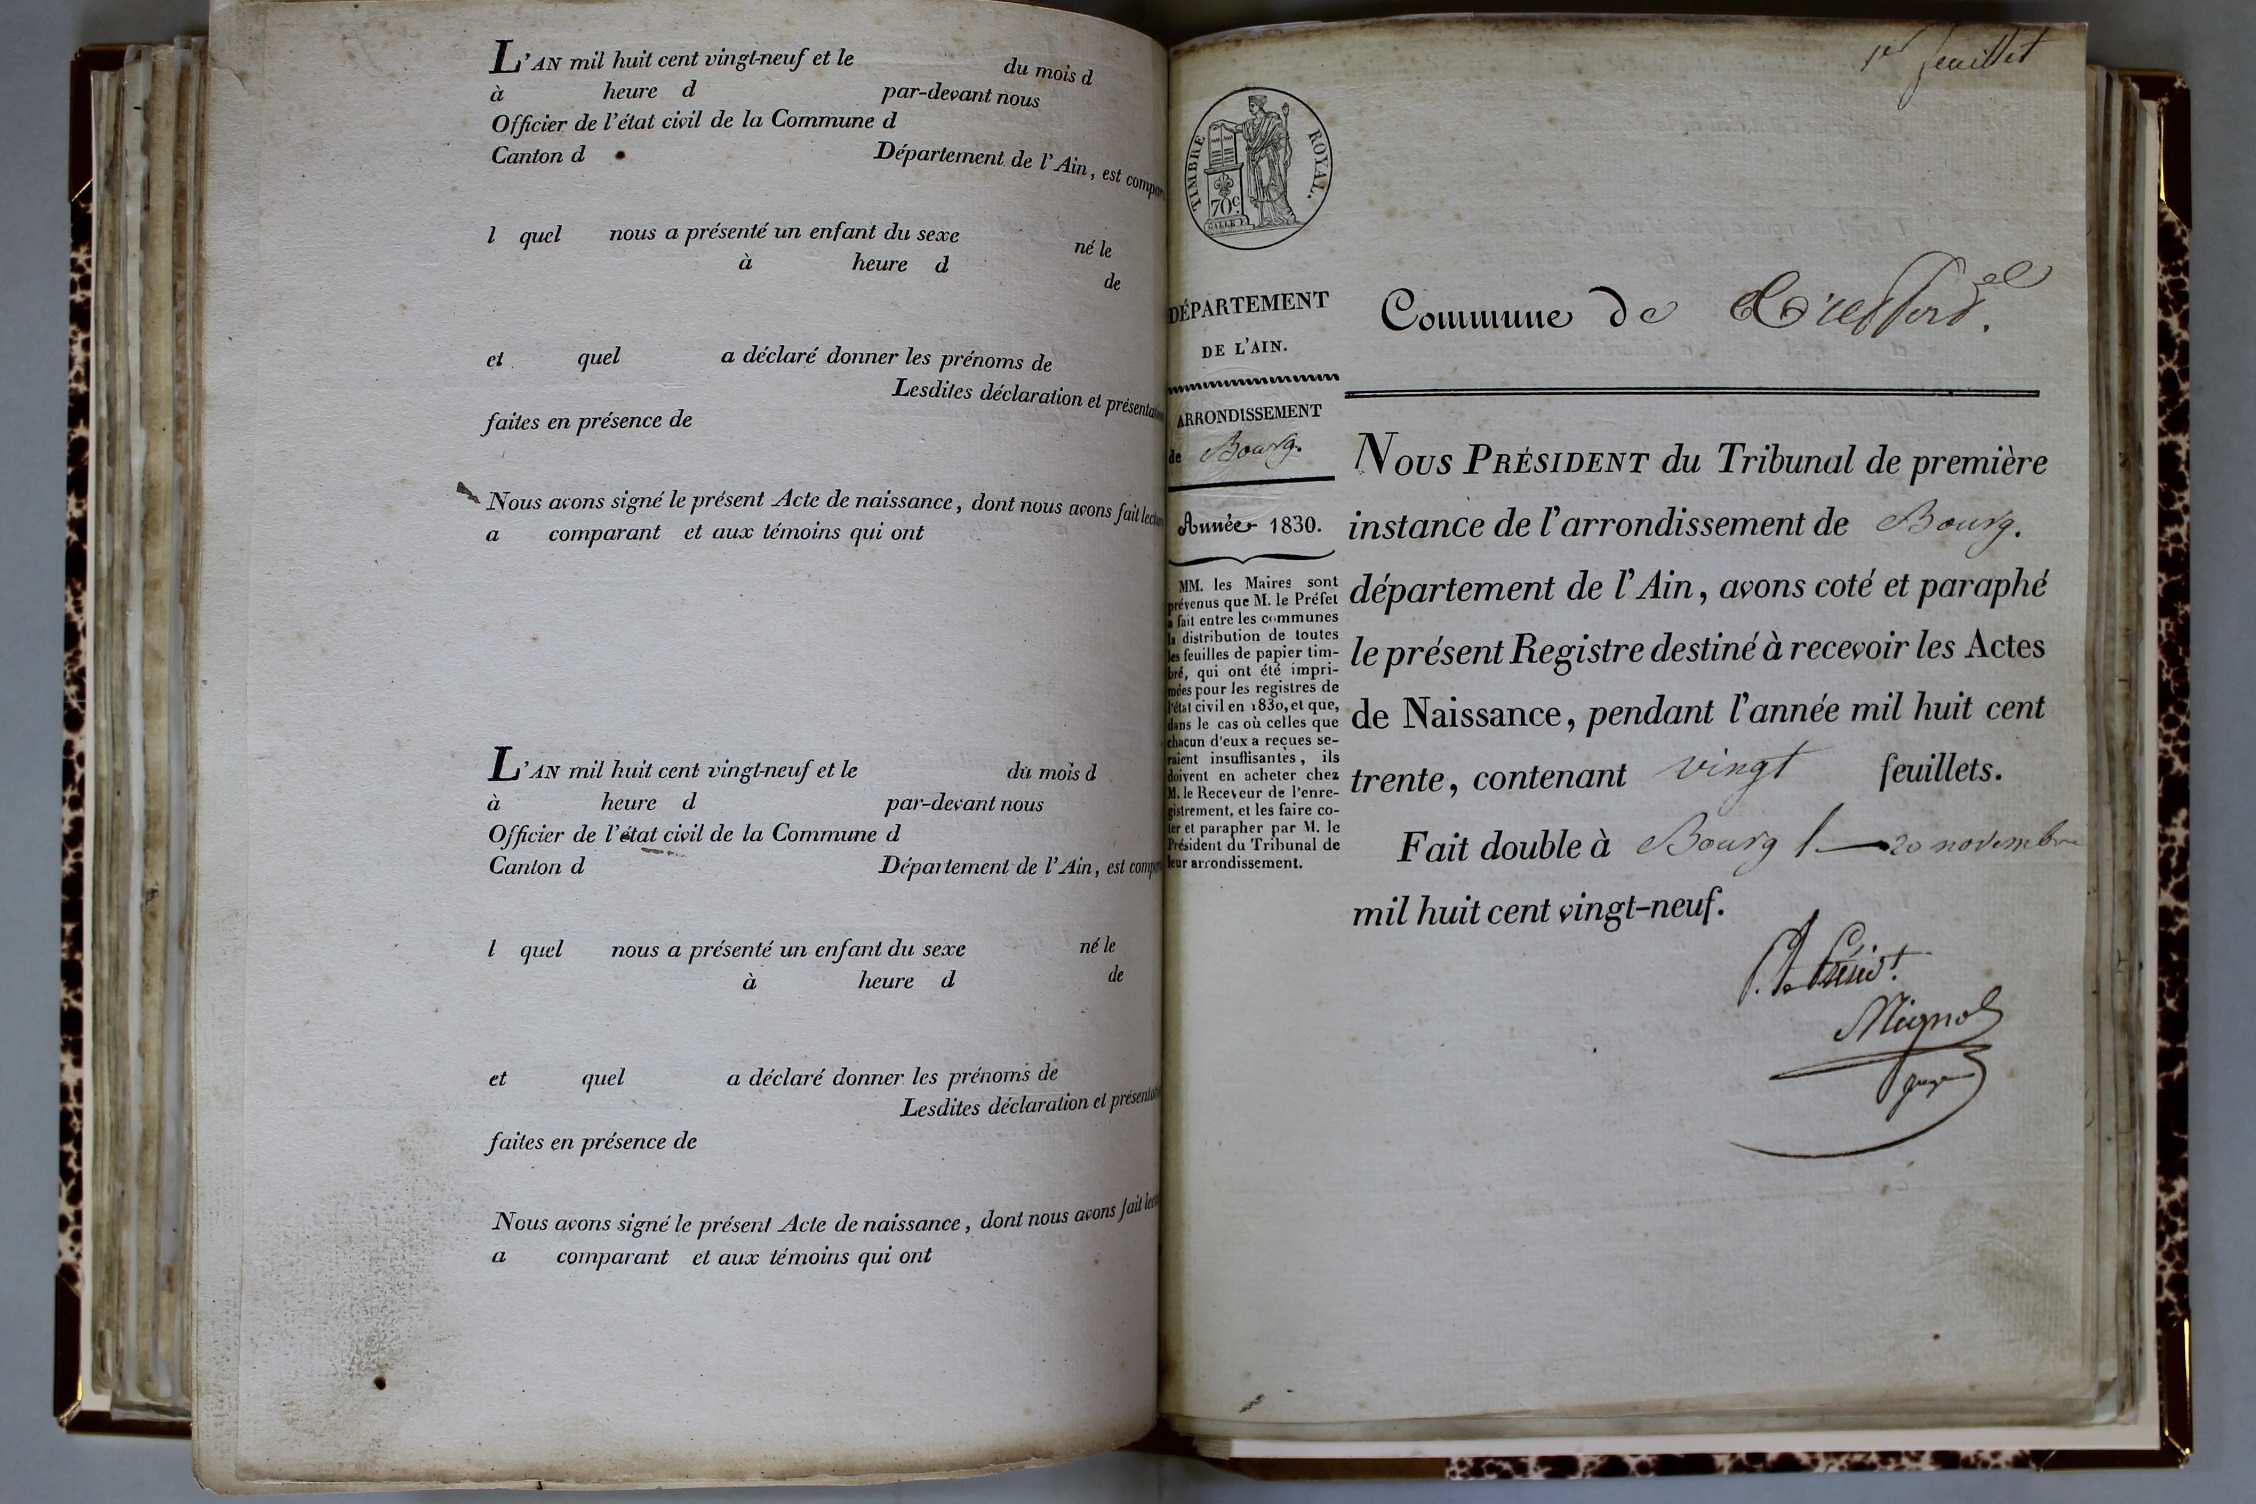 L'AN mil huit cent vingt-neuf et le du mois d
à heure d par-devant nous
Officier de l'état civil de la Commune d
Canton d Département de l'Ain, est compar
l quel nous a présenté un enfant du sexe né le
à heure d de
et quel a déclaré donner les prénoms de
Lesdites déclaration et présentation
faites en présence de
Nous avons signé le présent Acte de naissance, dont nous avons fait lecture
a comparant et aux témoins qui ont
L'AN mil huit cent vingt-neuf et le du mois d
à heure d par-devant nous
Officier de l'état civil de la Commune d
Canton d Département de l'Ain, est compar
l quel nous a présenté un enfant du sexe né le
à heure d de
et quel a déclaré donner les prénoms de
Lesdites déclaration et présentation
faites en présence de
Nous avons signé le présent Acte de naissance, dont nous avons fait lec
a comparant et aux témoins qui ont
1er feuillet
TIMBRE ROYAL.
70c
DÉPARTEMENT
DE L'AIN.
ARRONDISSEMENT
de Bourg.
Année 1830.
MM. les Maires sont
prévenus que M. le Préfet
a fait entre les communes
la distribution de toutes
les feuilles de papier tim-
bré, qui ont été impri-
mées pour les registres de
l'état civil en 1830, et que,
dans le cas où celles que
chacun d'eux a reçues se-
raient insuffisantes, ils
doivent en acheter chez
M. le Receveur de l'enre-
gistrement, et les faire co-
ter et parapher par M. le
Président du Tribunal de
leur arrondissement.
Commune de Treffort.
NOUS PRÉSIDENT du Tribunal de première
instance de l'arrondissement de Bourg.
département de l'Ain, avons coté et paraphé
le présent Registre destiné à recevoir les Actes
de Naissance, pendant l'année mil huit cent
trente, contenant vingt feuillets.
Fait double à Bourg l 20 novembre
mil huit cent vingt-neuf.
P. le Présidt.
juge